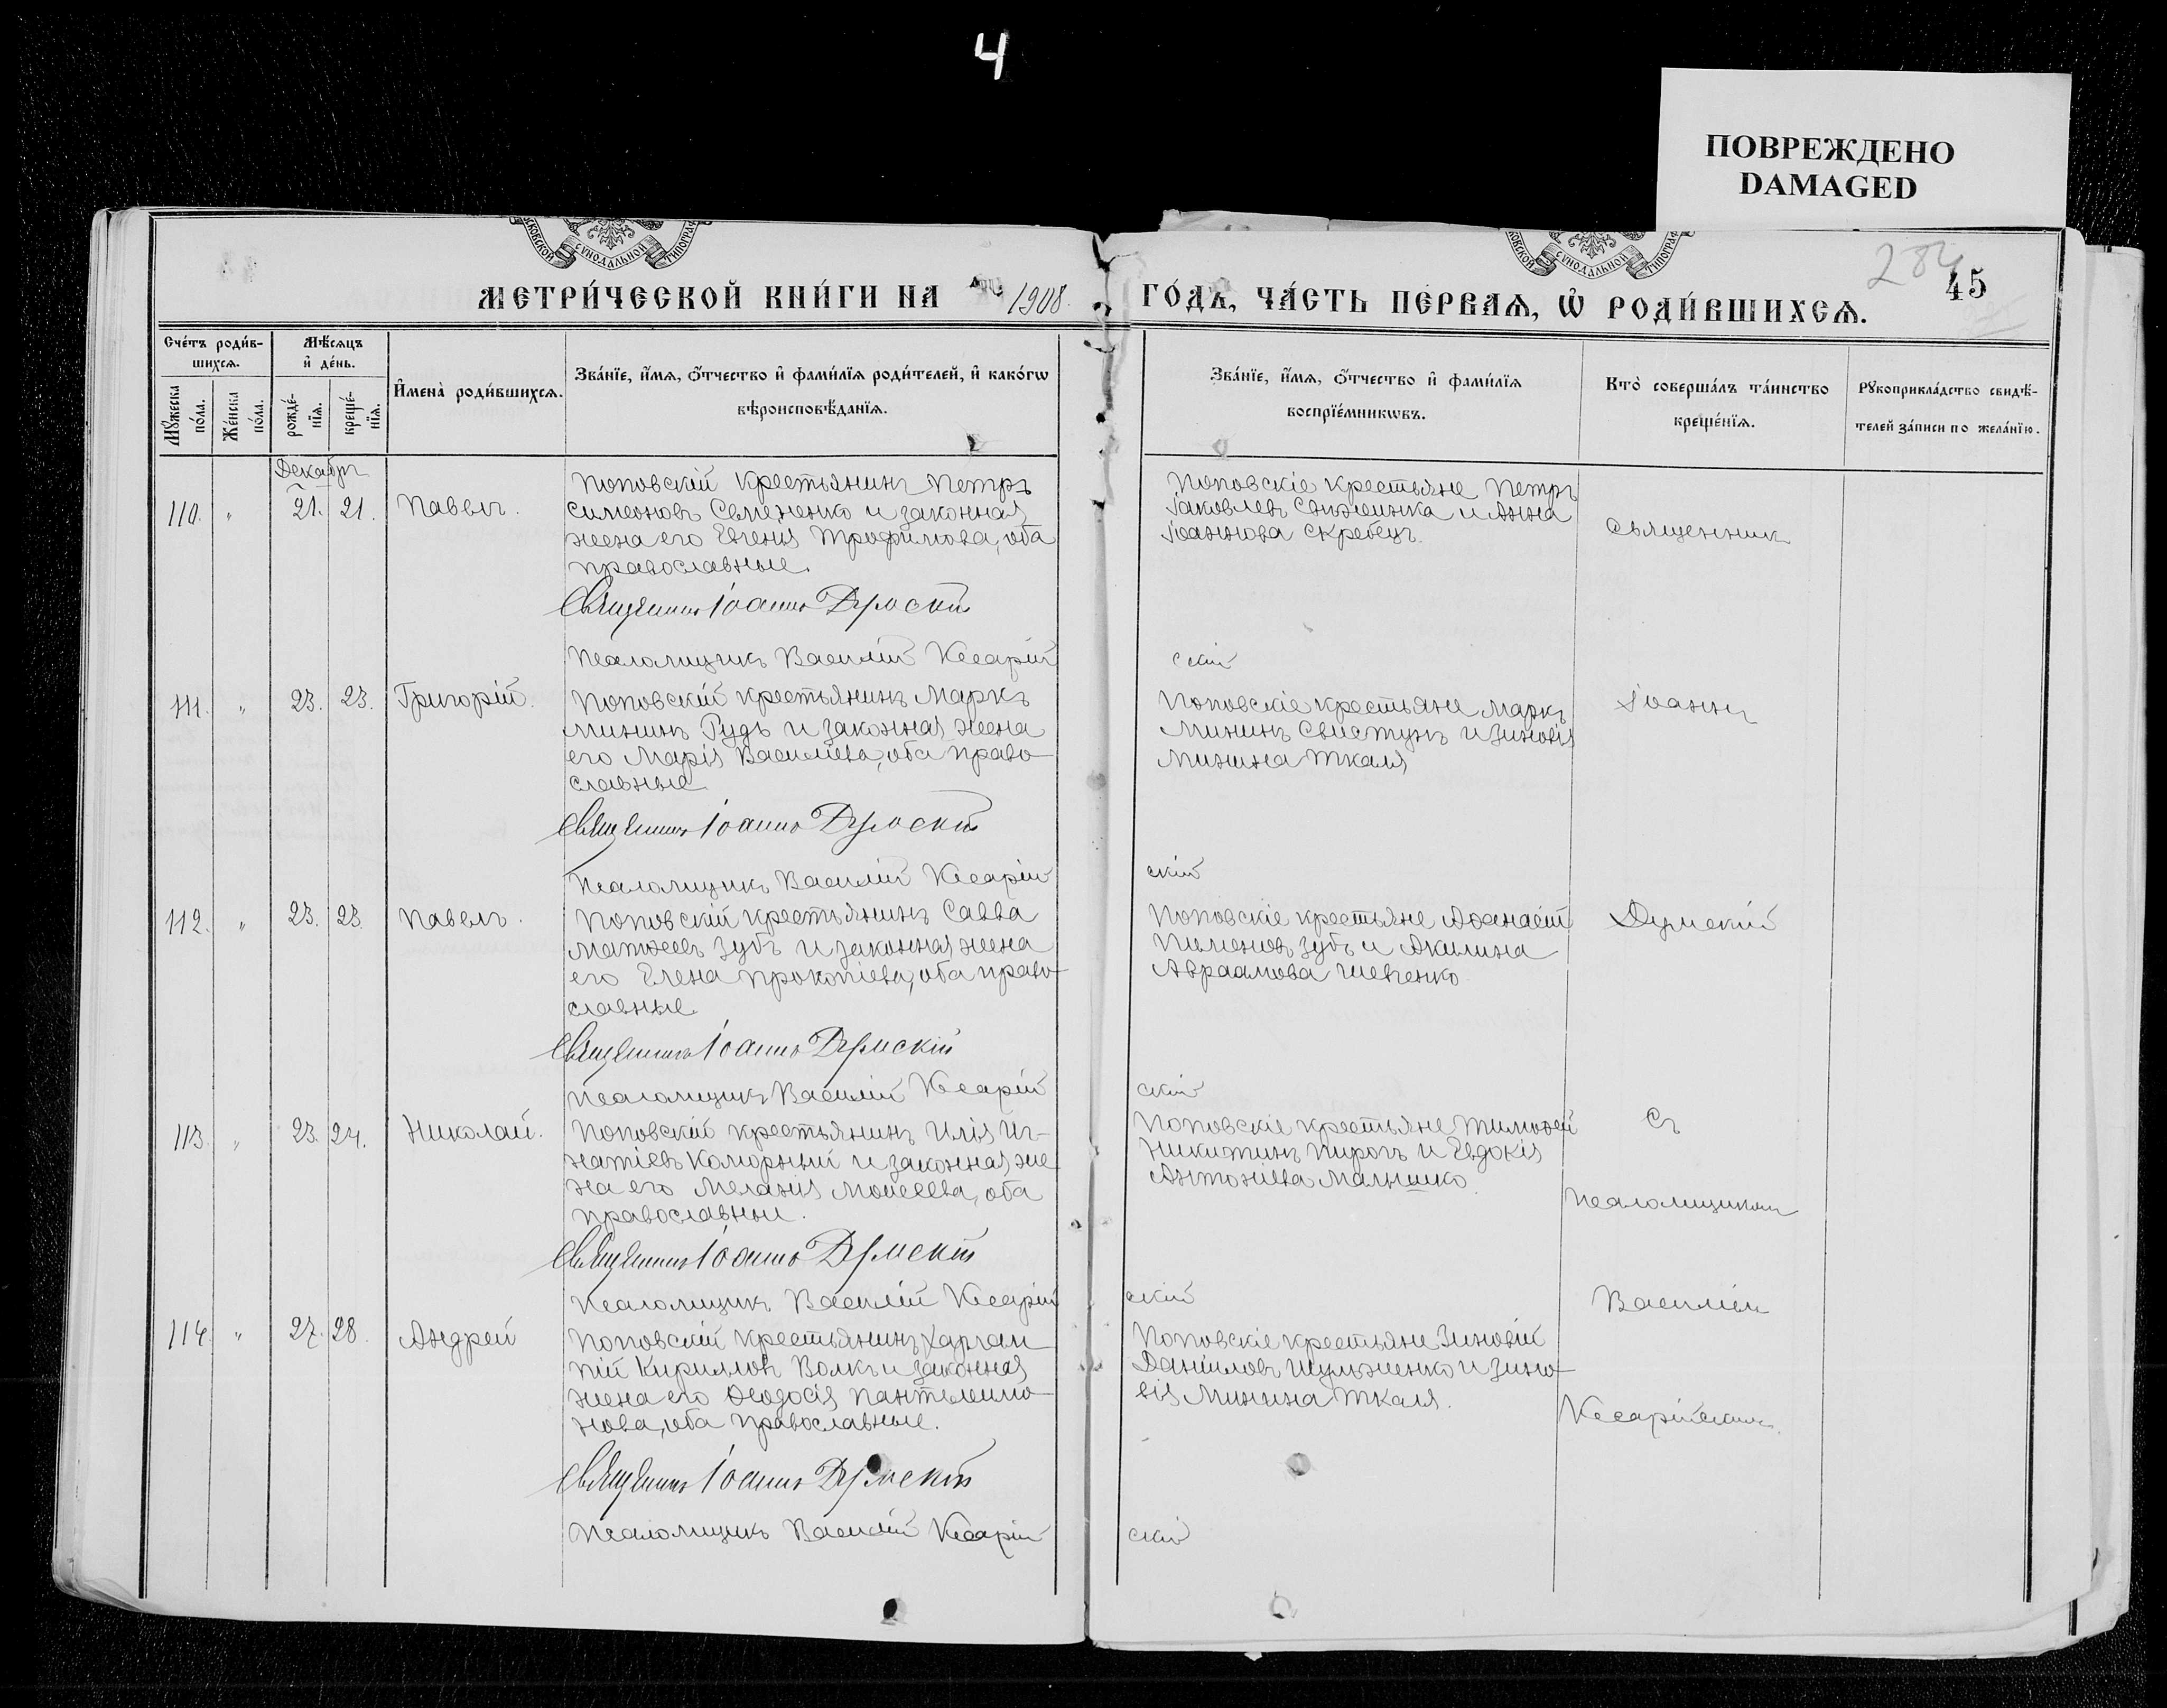 4
ПОВРЕЖДЕНО
DAMAGED
МЕТРИ́ЧЕСКОЙ КНИ́ГИ НА 1908
ГО́ДЪ, ЧА́СТЬ ПЕ́РВАѦ, Ѽ РОДИ́ВШИХСѦ.
284
45
Сче́тъ роди́в-
шихсѧ.
Мѣ́сѧцъ
и҆ де́нь.
Мꙋ́жеска
по́ла.
Же́нска
по́ла.
рожде́-
нїѧ.
креще́-
нїѧ.
И҆мена̀ роди́вшихсѧ.
Зва́нїе, и҆́мѧ, ѻ҆́тчество и҆ фами́лїѧ роди́телей, и҆ како́гѡ
вѣроисповѣ́данїѧ.
Зва́нїе, и҆́мѧ, ѻ҆́тчество и҆ фами́лїѧ
воспрїе́мникѡвъ.
Кто̀ соверша́лъ та́инство
креще́нїѧ.
Рꙋкоприкла́дство свидѣ́-
телей за́писи по жела́нїю.
Декабрь
110. " 21. 21. Павелъ.
Поповскій крестьянинъ Петръ
Симеоновъ Семененко и законная
жена его Евгенія Трофимова, оба
православные.
Священникъ Іоаннъ Думскій
Псаломщикъ Василій Кесарій
Поповскіе крестьяне Петръ
Іаковлевъ и Анна
Іоаннова Скребецъ
Священник
скій
111. " 23. 23. Григорій.
Поповскій крестьянинъ Маркъ
Мининъ Рудь и законная жена
его Марія Василіева, оба право-
славные
Священникъ Іоаннъ Думскій
Псаломщикъ Василій Кесарій
Поповскіе крестьяне Маркъ
Мининъ Свистунъ и Зиновія
Минина Ткаля
Іоаннъ
скій
112. " 23. 23. Павелъ.
Поповскій крестьянинъ Савва
Матѳеевъ Зубъ и законная жена
его Елена Прокопіева, оба право-
славные
Священникъ Іоаннъ Думскій
Псаломщикъ Василій Кесарій
Поповскіе крестьяне Аѳанасій
Пименовъ Зубъ и Акилина
Авраамова Шевченко
Думскій
скій
113. " 23. 24. Николай.
Поповскій крестьянинъ Илія Иг-
натіевъ Коморный и законная же-
на его Меланія Моисеева, оба
православные.
Священникъ Іоаннъ Думскій
Псаломщикъ Василій Кесарій
Поповскіе крестьяне Тимоѳей
Никитинъ Пирогъ и Евдокія
Антоніева Малышко
Съ
Псаломщикомъ
скій
Василіем
114. " 27. 28. Андрей
Поповскій крестьянинъ Харлам
пій Кирилловъ Волкъ и законная
жена его Ѳеодосія Пантелеимо-
нова, оба православные.
Священникъ Іоаннъ Думскій
Псаломщикъ Василій Кесарій
Поповскіе крестьяне Зиновій
Даніиловъ Шульженко и Зино-
вія Минина Ткаля.
Кесарійскимъ.
скій